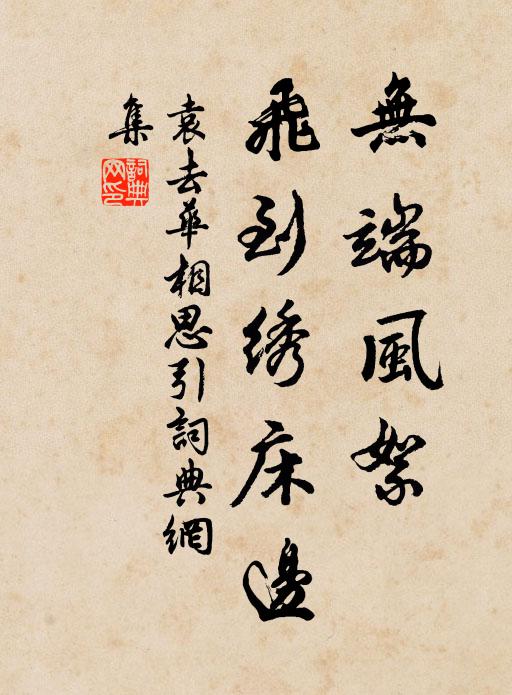 無端風絮
飛到绣床邊
袁去華相思引詞典網
集
詞典網印